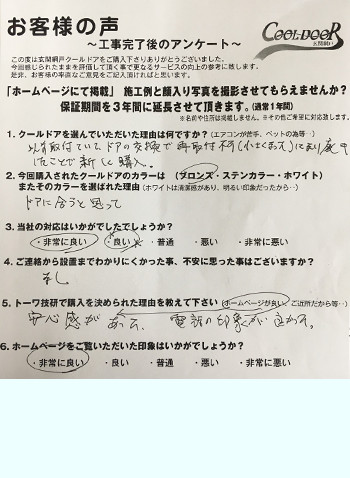 お客様の声
COOL DOOR
玄関網戸
～工事完了後のアンケート～
この度は玄関網戸クールドアをご購入下さりありがとうございます。
今回感じられたままを評価して頂く事で更なるサービスの向上の参考に致します。
是非、お客様の率直なご意見をご記入頂ければと思います。
「ホームページにて掲載」 施工例と顔入り写真を撮影させてもらえませんか？
保証期間を3年間に延長させて頂きます。(通常1年間)
※名前や住所は掲載しません。※その他ご希望に対応致します。
1. クールドアを選んでいただいた理由は何ですか？（エアコンが苦手、ペットの為等…）
以前取付いていて、ドアの交換で再取付不可
したことで新しく購入。
2. 今回購入されたクールドアのカラーは（ブロンズ・ステンカラー・ホワイト）
またそのカラーを選ばれた理由（ホワイトは清潔感があり、明るい印象だったから…）
ドアに合うと思って
3. 当社の対応はいかがでしたでしょうか？
・非常に良い ・良い ・普通 ・悪い ・非常に悪い
4. ご連絡から設置までわかりにくかった事、不安に思った事はございますか？
なし
5. トーワ技研で購入を決められた理由を教えて下さい（ホームページが良い、ご近所だから等…）
安心感があって、電話の印象が良かった。
6. ホームページをご覧いただいた印象はいかがでしょうか？
・非常に良い ・良い ・普通 ・悪い ・非常に悪い